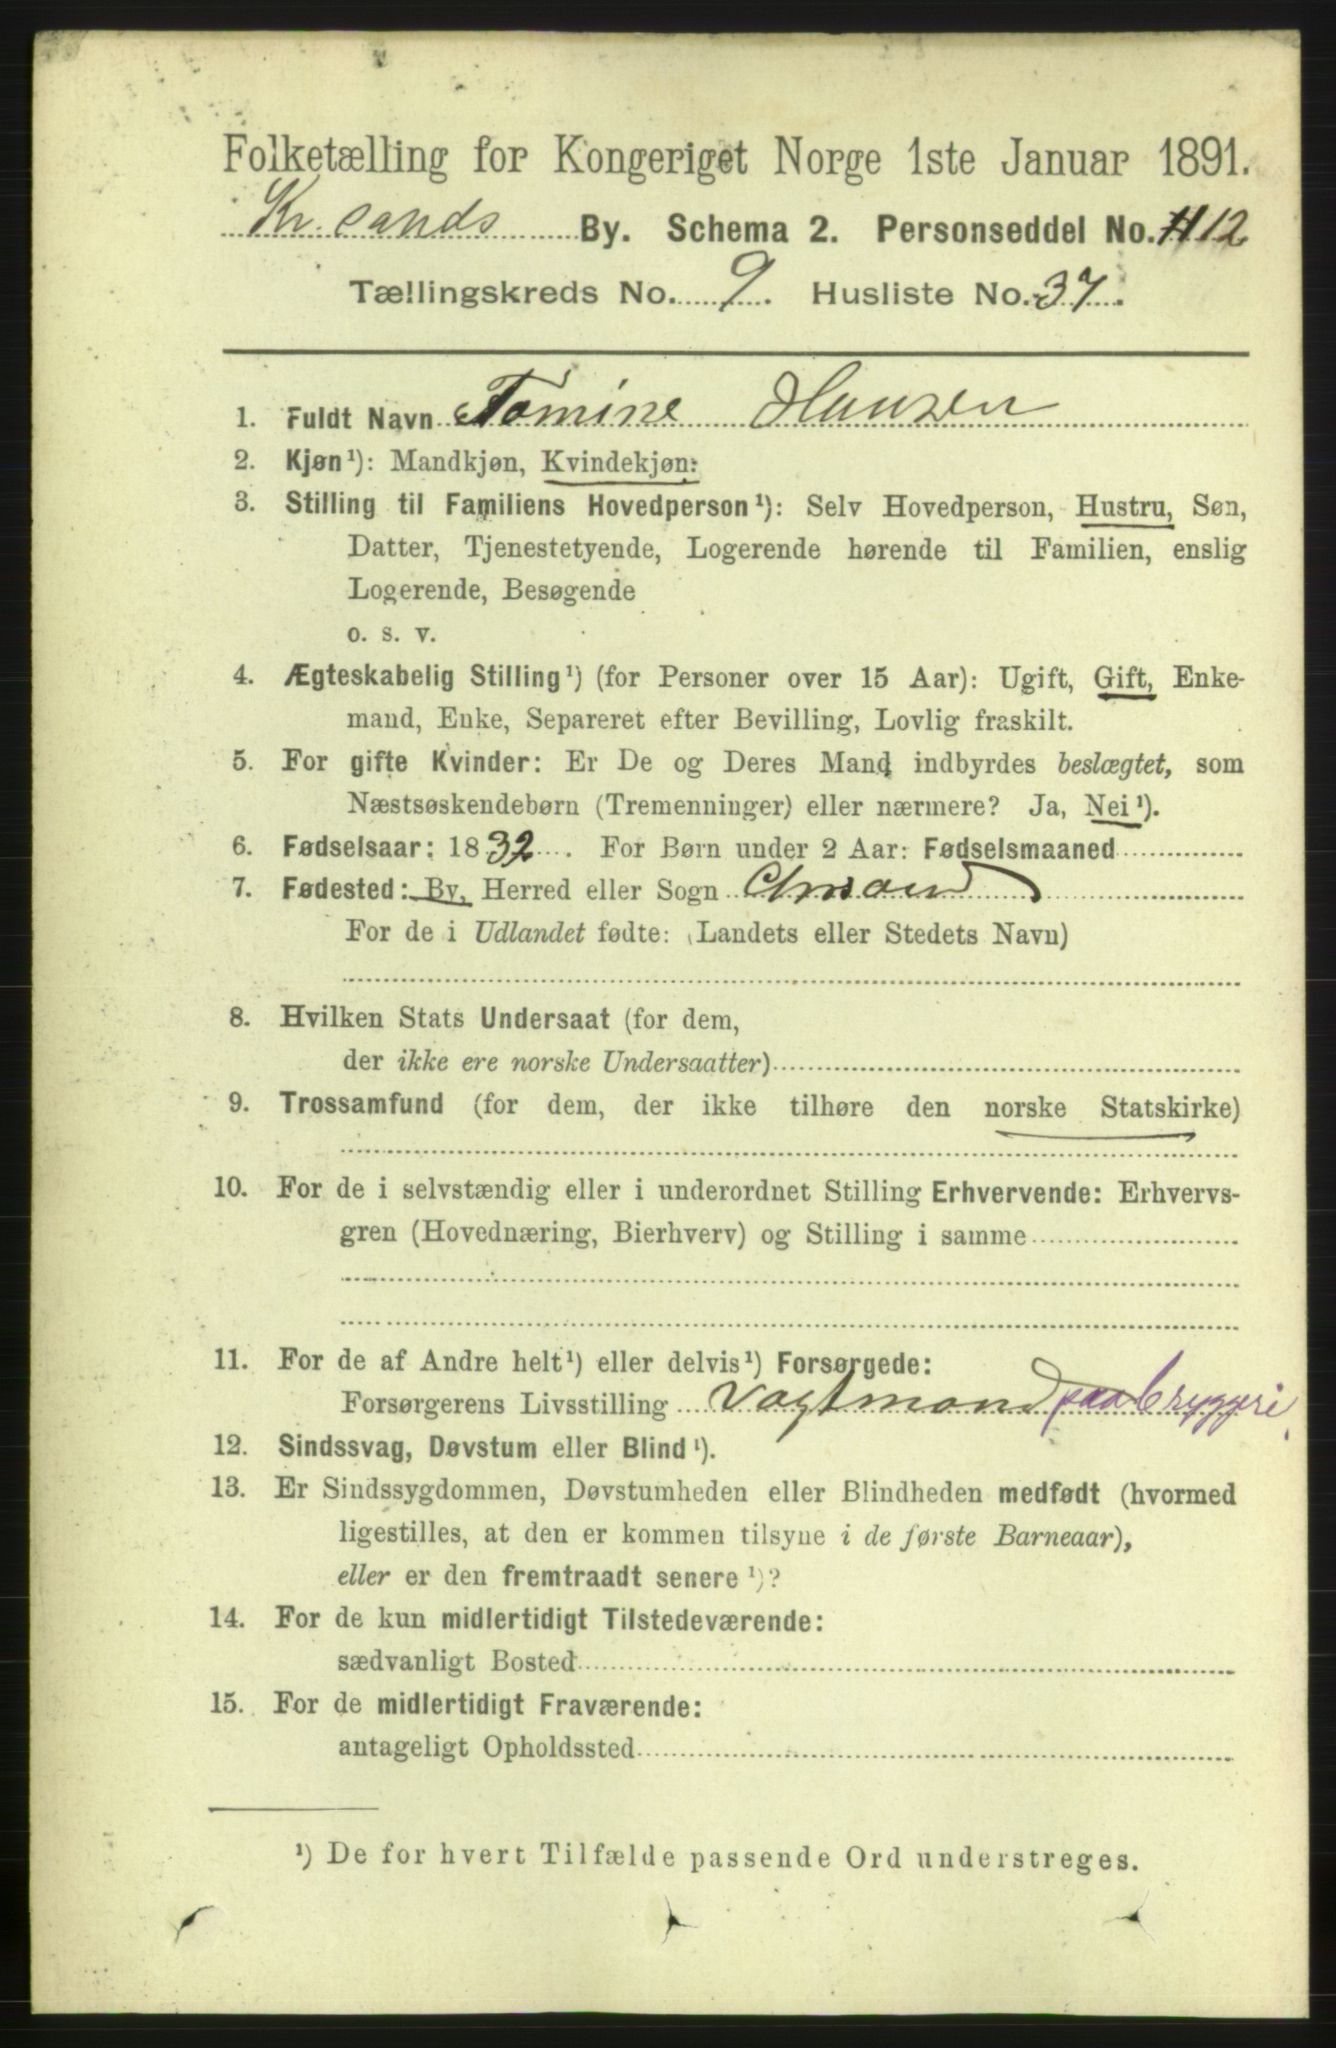 Folketælling for Kongeriget Norge 1ste Januar 1891.
Kr.sands By. Schema 2. Personseddel No. 12
Tællingskreds No. 9. Husliste No. 37.
1. Fuldt Navn Tomine Hansen
2. Kjøn¹): Mandkjøn, Kvindekjøn:
3. Stilling til Familiens Hovedperson¹): Selv Hovedperson, Hustru, Søn,
Datter, Tjenestetyende, Logerende hørende til Familien, enslig
Logerende, Besøgende
o. s. v.
4. Ægteskabelig Stilling¹) (for Personer over 15 Aar): Ugift, Gift, Enke-
mand, Enke, Separeret efter Bevilling, Lovlig fraskilt.
5. For gifte Kvinder: Er De og Deres Mand indbyrdes beslægtet, som
Næstsøskendebørn (Tremenninger) eller nærmere? Ja, Nei¹).
6. Fødselsaar: 1832. For Børn under 2 Aar: Fødselsmaaned
7. Fødested: By, Herred eller Sogn
For de i Udlandet fødte: (Landets eller Stedets Navn)
8. Hvilken Stats Undersaat (for dem,
der ikke ere norske Undersaatter)
9. Trossamfund (for dem, der ikke tilhøre den norske Statskirke)
10. For de i selvstændig eller i underordnet Stilling Erhvervende: Erhvervs-
gren (Hovednæring, Bierhverv) og Stilling i samme
11. For de af Andre helt¹) eller delvis¹) Forsørgede:
Forsørgerens Livsstilling Vagtmand paa bryggeri.
12. Sindssvag, Døvstum eller Blind¹).
13. Er Sindssygdommen, Døvstumheden eller Blindheden medfødt (hvormed
ligestilles, at den er kommen tilsyne i de første Barneaar),
eller er den fremtraadt senere¹)?
14. For de kun midlertidigt Tilstedeværende:
sædvanligt Bosted
15. For de midlertidigt Fraværende:
antageligt Opholdssted
¹) De for hvert Tilfælde passende Ord understreges.